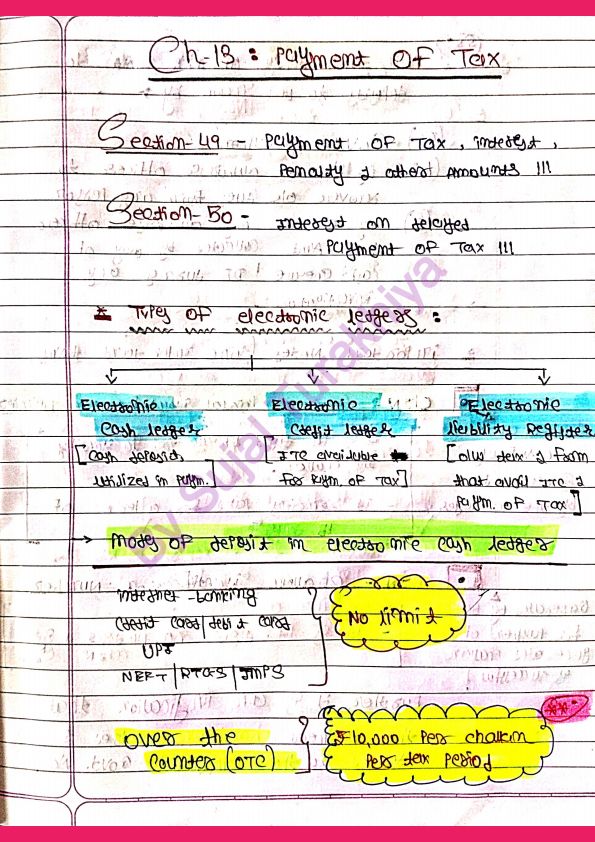 Ch-13 : Payment of Tax
Section-49 - Payment of Tax, interest,
Penalty & other Amounts !!!
Section-50 - interest on delayed
Payment of Tax !!!
* Types of electronic ledgers :
Electronic
Cash ledger
[Cash deposits
utilized in Paym.]
Electronic
Credit ledger
[ITC available
For Paym. of Tax]
Electronic
liability Register
that avail ITC &
Paym. of Tax]
→ modes of deposit in electronic cash ledger
internet-banking
Credit card/debit card
UPI
NEFT/RTGS/IMPS
No limit
over the
Counter (OTC)
₹10,000 Per challan
Per tax period
**
By Sujal Turakhiya